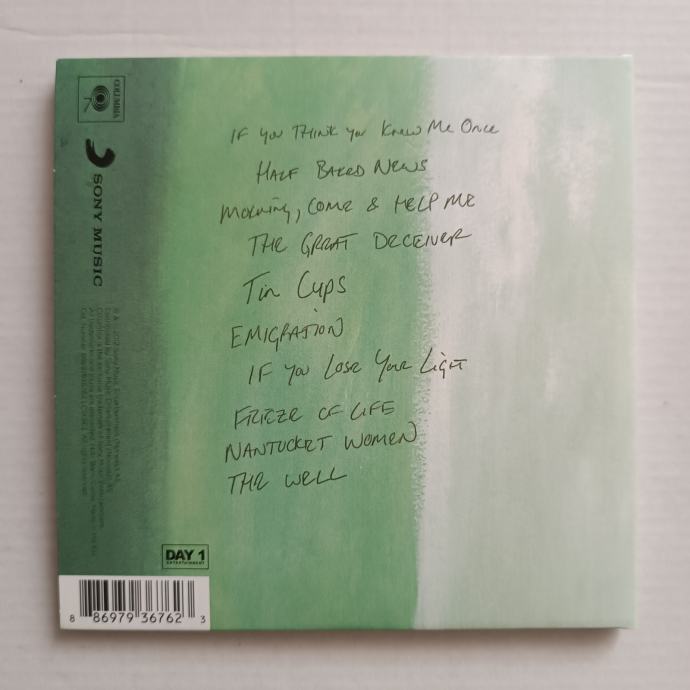 IF YOU THINK YOU KNEW ME ONCE
HALF BAKED NEWS
MORNING, COME & HELP ME
THE GREAT DECEIVER
Tin Cups
EMIGRATION
IF YOU LOSE YOUR LIGHT
FREEZE OF LIFE
NANTUCKET WOMEN
THE WELL
COLUMBIA
SONY MUSIC
DAY 1
ENTERTAINMENT
8 86979 36762 3